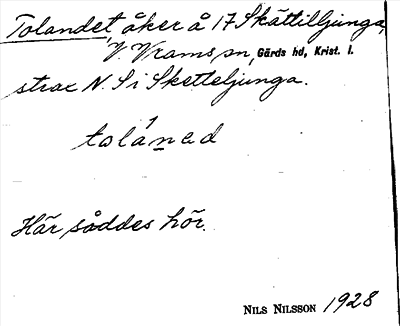 Tolandet, åker å 17 Skättilljunga,
V. Vrams sn, Gärds hd, Krist. l.
strax N. S i Sketteljunga.
toláned
Här såddes hör.
NILS NILSSON 1928